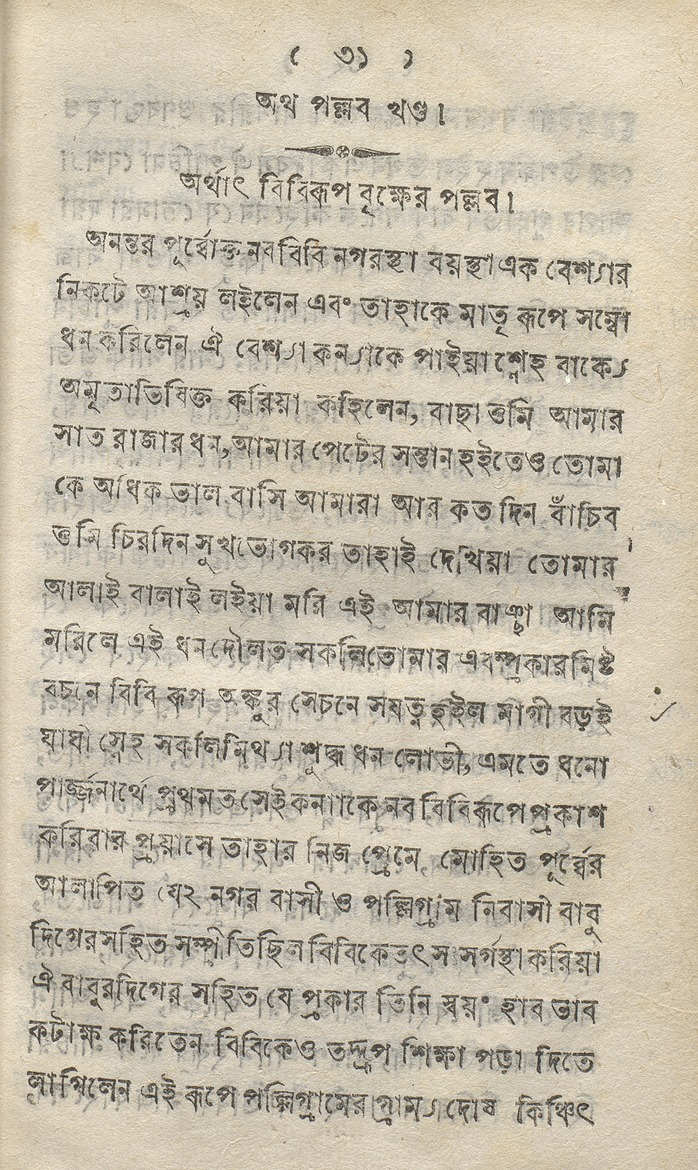 ( ৩১ )
অথ পল্লব খণ্ড।
অর্থাৎ বিবিরূপ বৃক্ষের পল্লব।
অনন্তর পূর্ব্বোক্ত নববিবি নগরস্থা বয়স্থা এক বেশ্যার
নিকটে আশ্রয় লইলেন এবং তাহাকে মাতৃ রূপে সম্বো
ধন করিলেন ঐ বেশ্যা কন্যাকে পাইয়া শ্নেহ বাক্যে
অমৃতাভিষিক্ত করিয়া কহিলেন, বাছা তুমি আমার
সাত রাজার ধন, আমার পেটের সন্তান হইতেও তোমা
কে অধিক ভাল বাসি আমারা আর কত দিন বাঁচিব
তুমি চিরদিন সুখভোগকর তাহাই দেখিয়া তোমার
আলাই বালাই লইয়া মরি এই আমার বাঞ্ছা আমি
মরিলে এই ধনদৌলত সকলিতোমার এবম্প্রকার মিষ্ট
বচনে বিবি রূপ অঙ্কুর সেচনে সযত্ন হইল মাগী বড়ই
ঘাঘী স্নেহ সকলি মিথ্যা শুদ্ধ ধন লোভী, এমতে ধনো
পার্জ্জনার্থে প্রথমত সেই কন্যাকে নব বিবিরূপে প্রকাশ
করিবার প্রয়াসে তাহার নিজ প্রেমে মোহিত পূর্ব্বের
আলাপিত যে২ নগর বাসী ও পল্লিগ্রাম নিবাসী বাবু
দিগের সহিত সম্প্রীতি ছিল বিবিকে তৎ সংসর্গস্থা করিয়া
ঐ বাবুরদিগের সহিত যে প্রকার তিনি স্বয়ং হাব ভাব
কটাক্ষ করিতেন বিবিকেও তদ্রূপ শিক্ষা পড়া দিতে
লাগিলেন এই রূপে পল্লিগ্রামের গ্রাম্য দোষ কিঞ্চিৎ